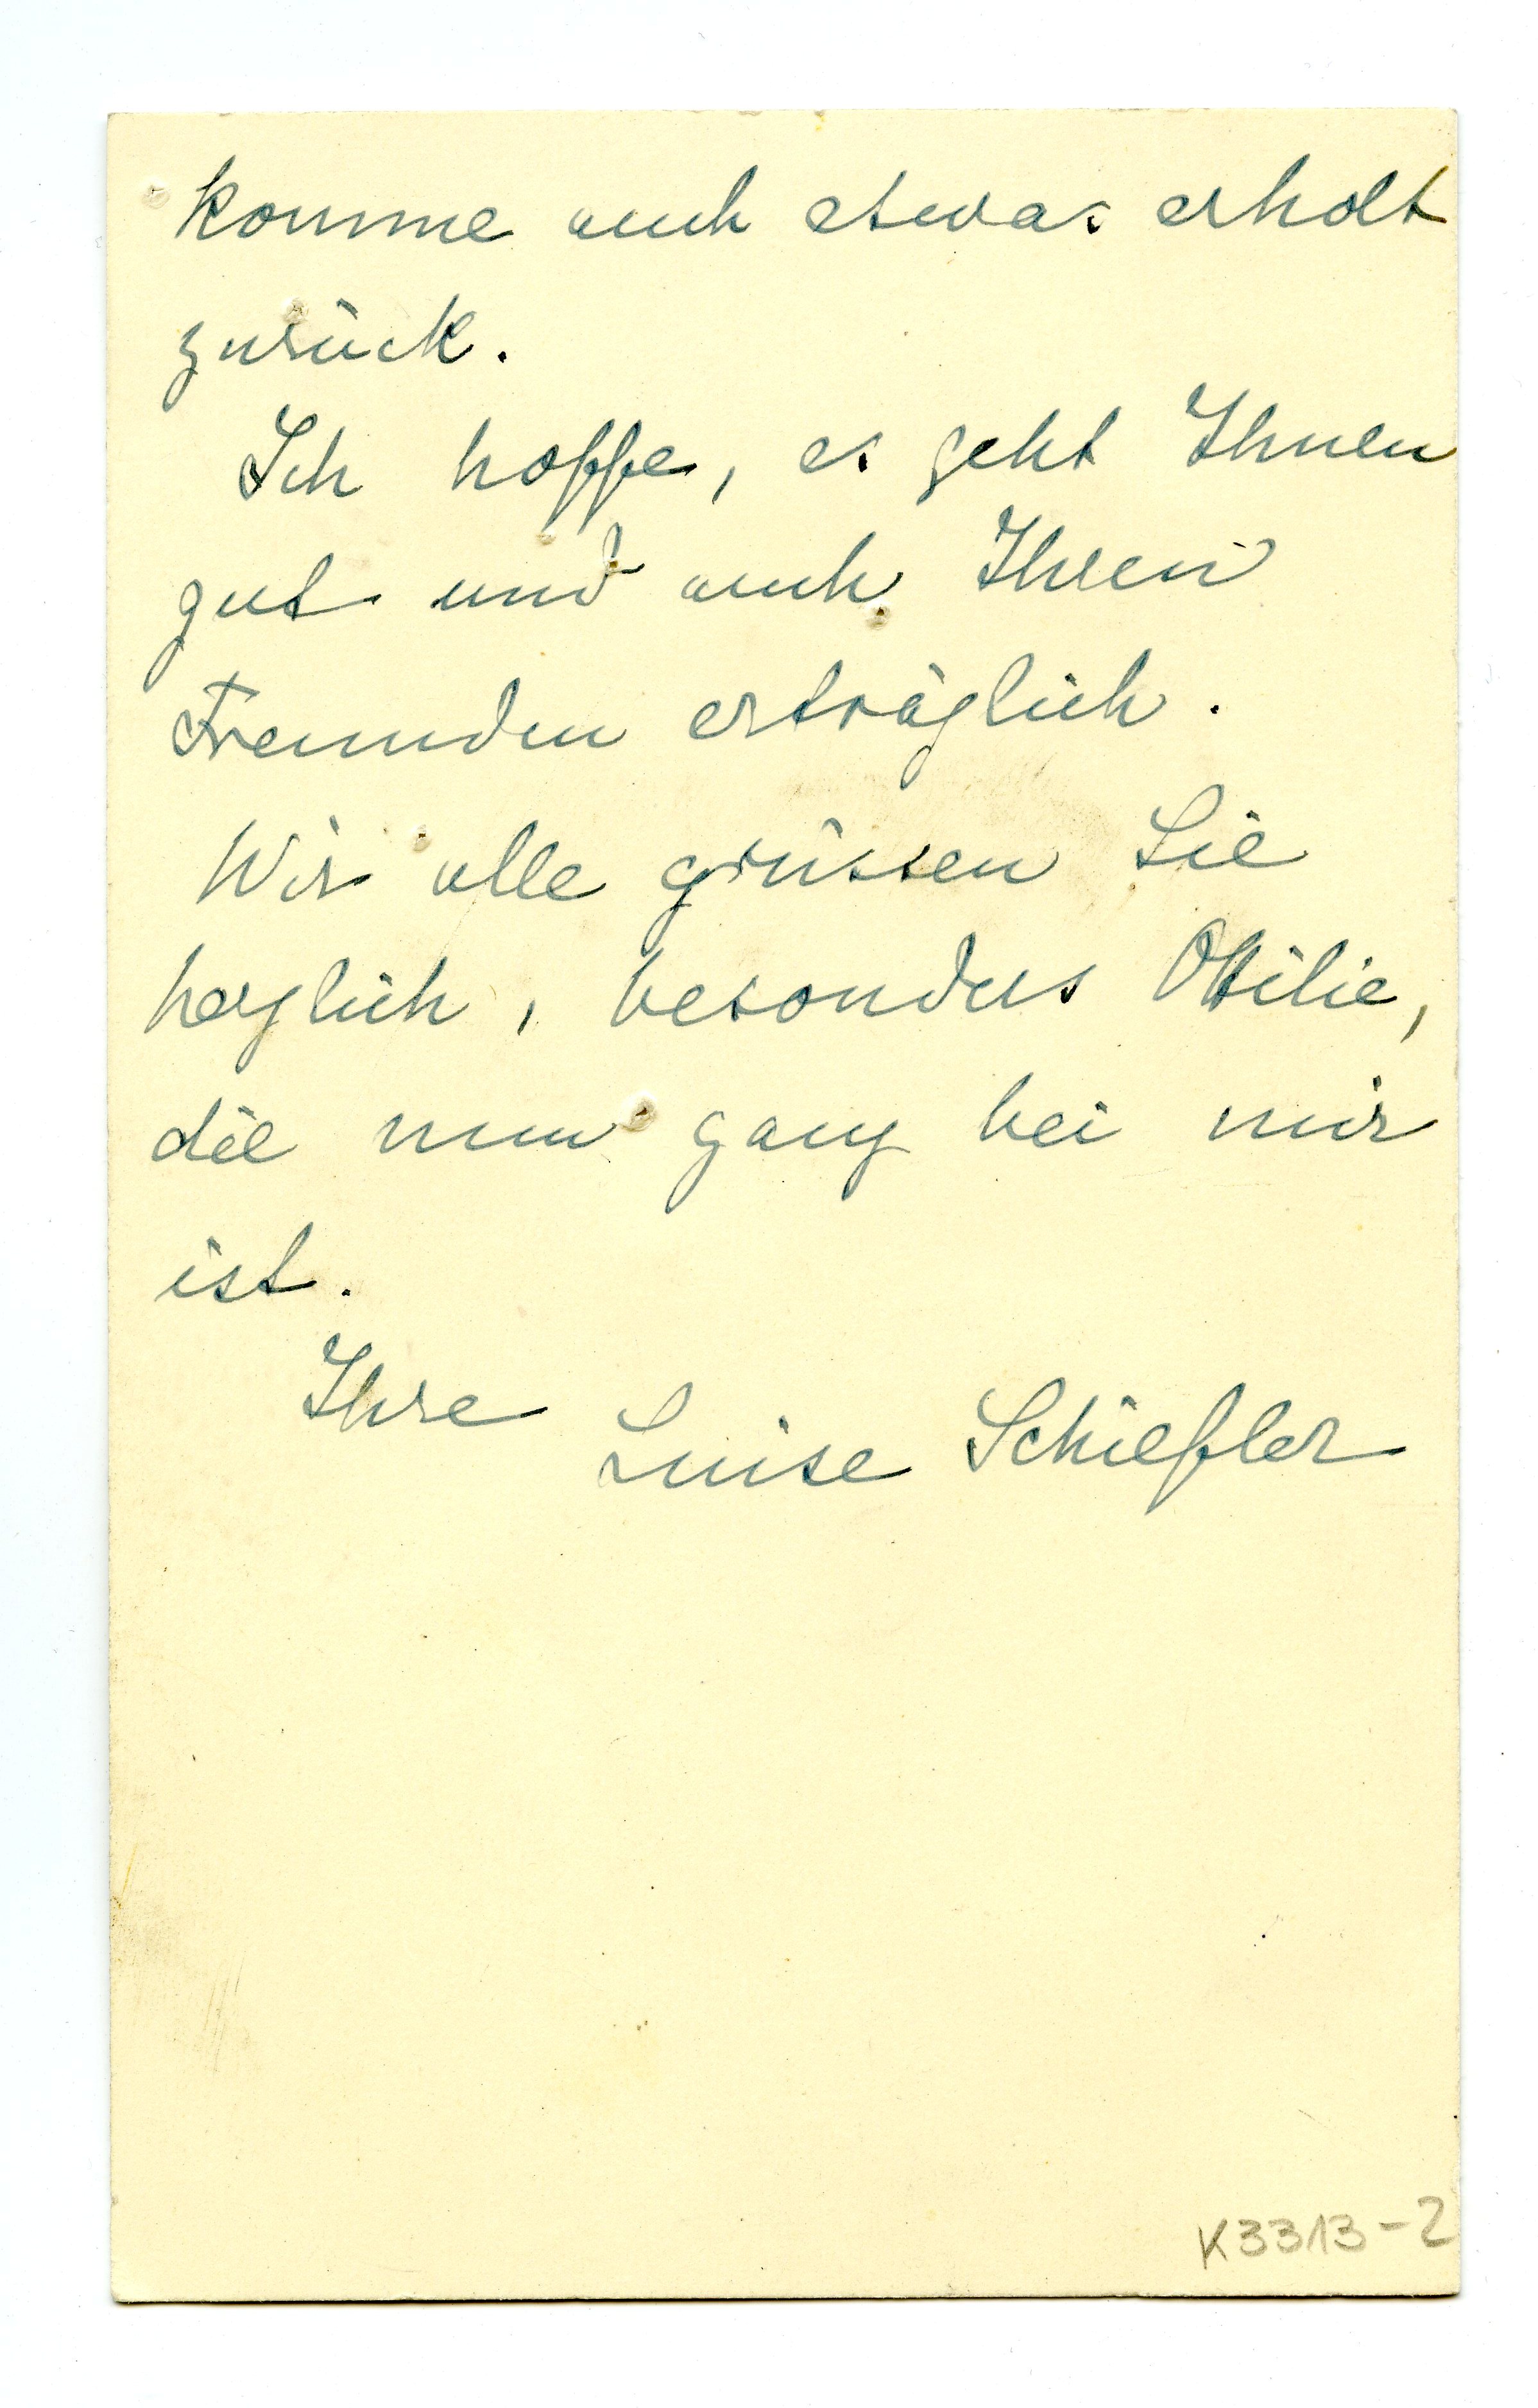 komme auch etwas erholt
zurück.
Ich hoffe, es geht Ihnen
gut und auch Ihren
Freunden erträglich.
Wir alle grüssen Sie
herzlich, besonders Ottilie,
die nun ganz bei mir
ist.
Ihre Luise Schiefler
K3313-2